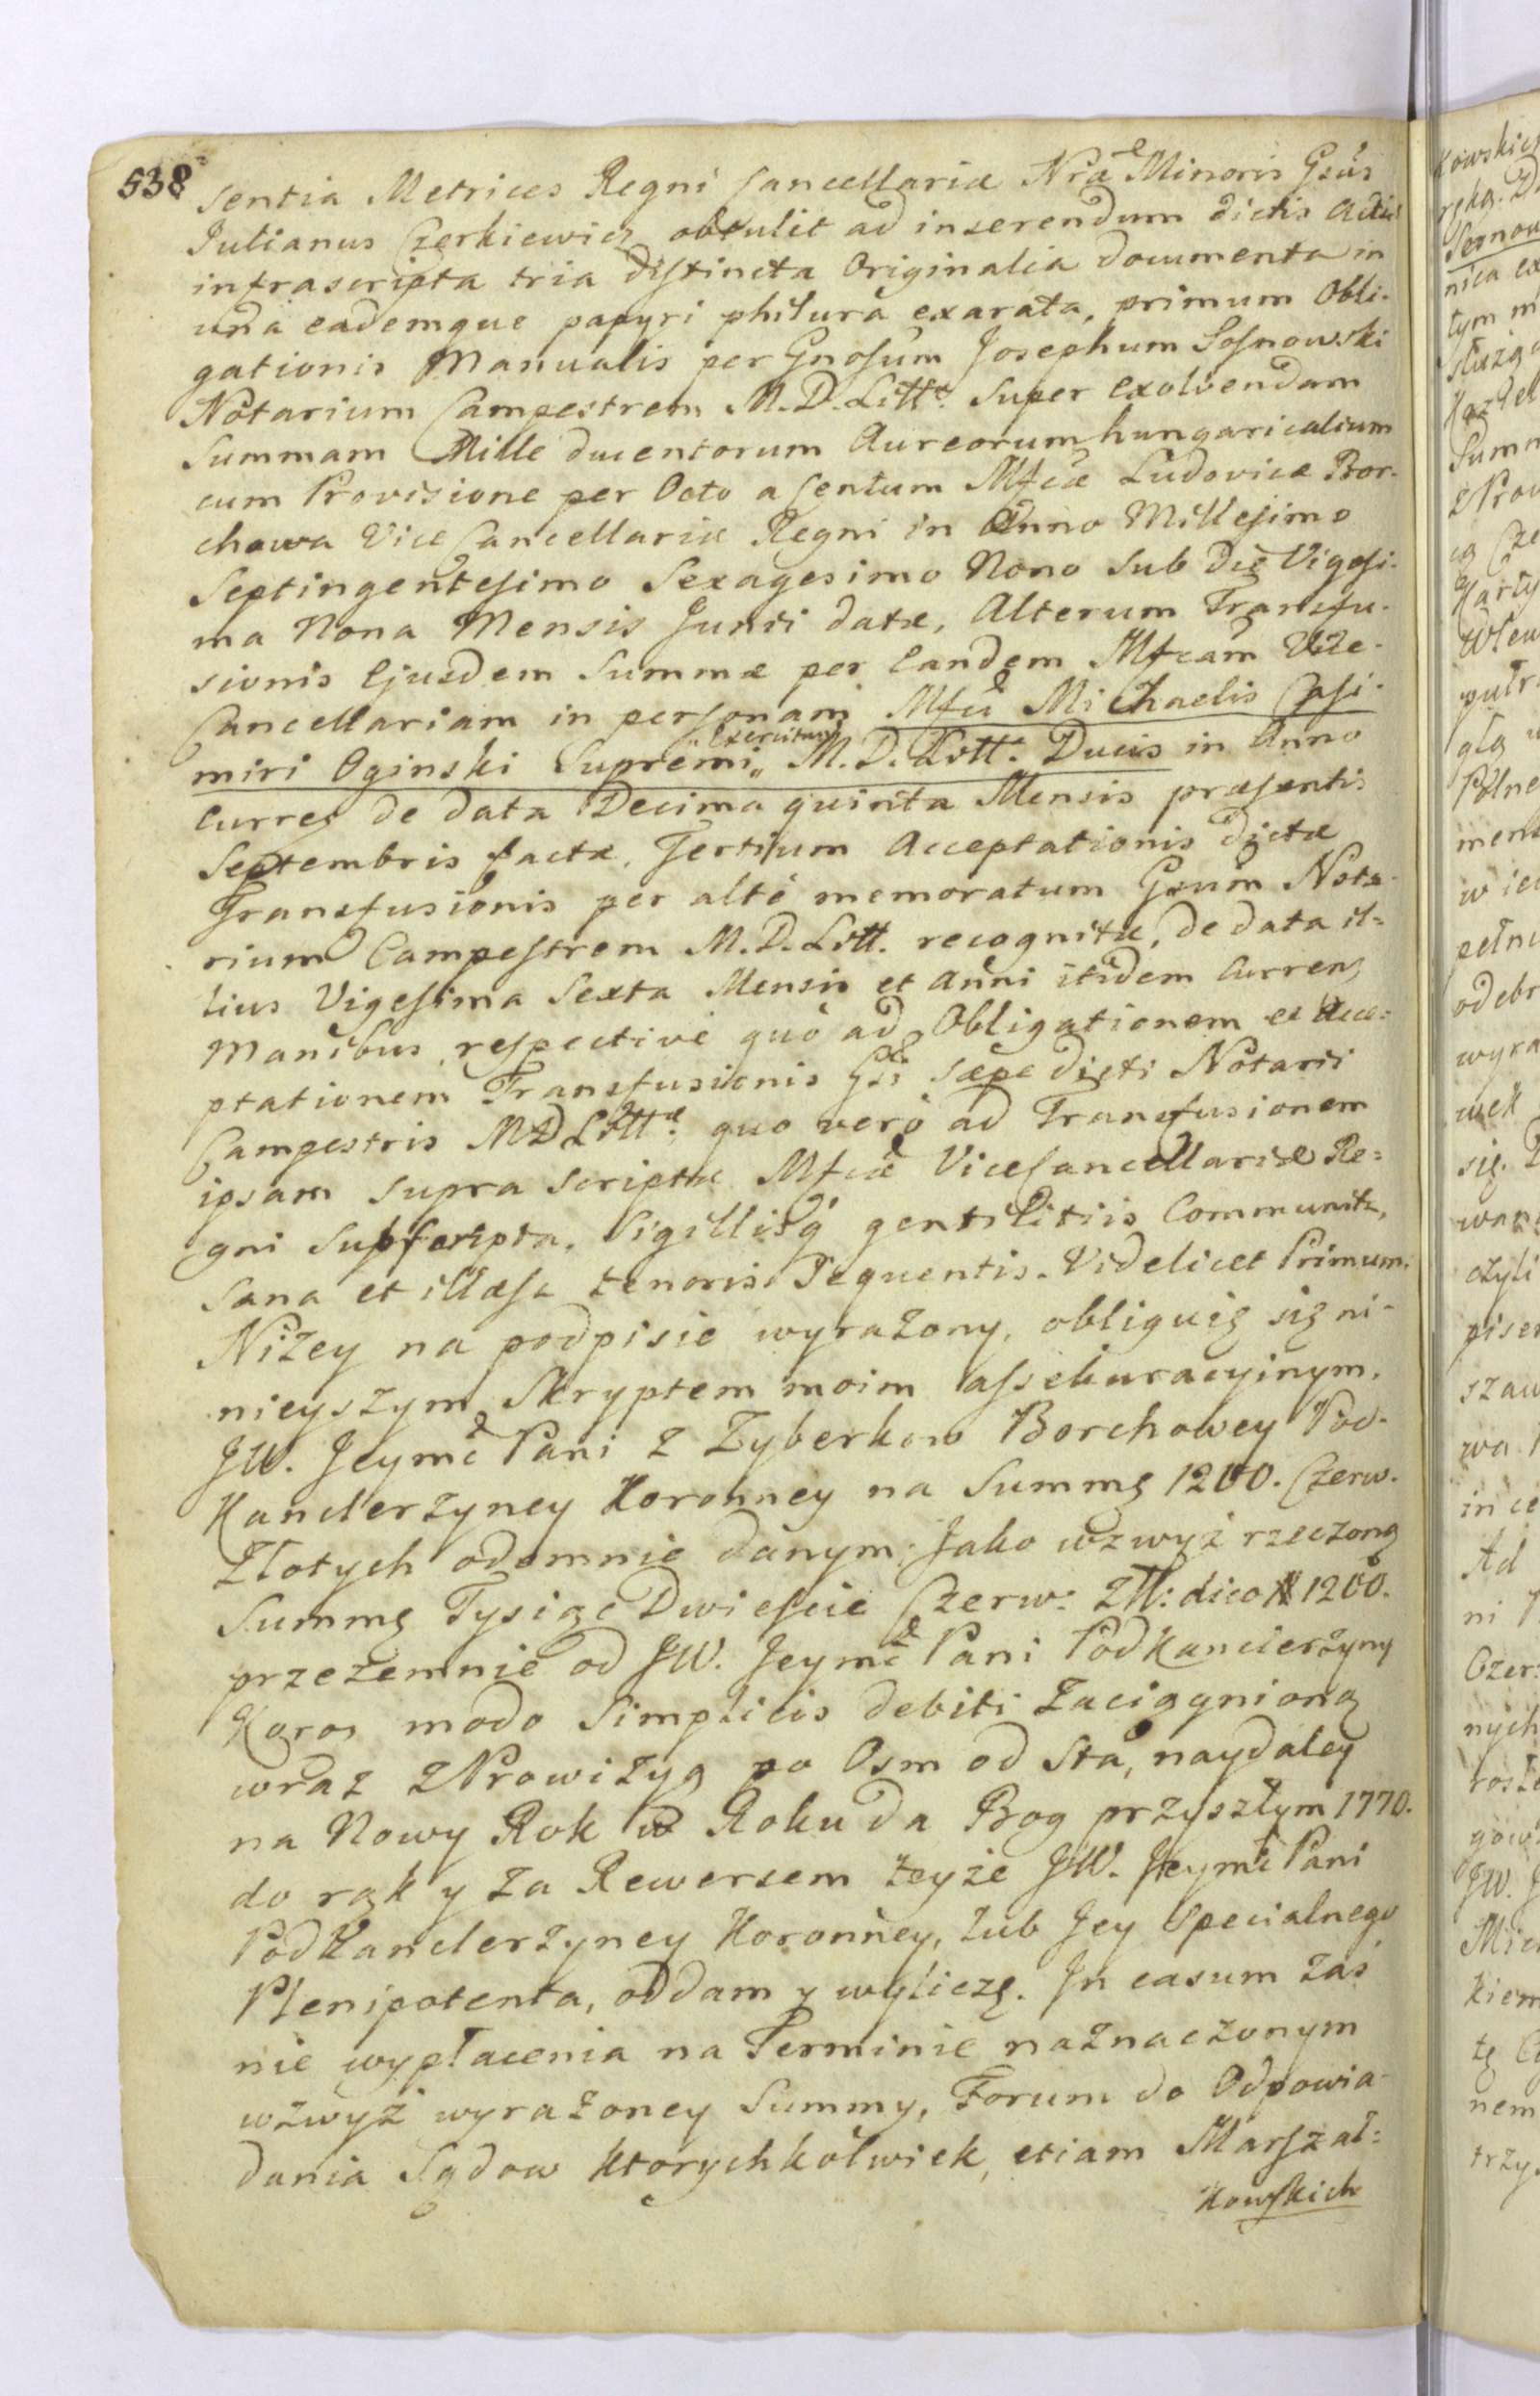 538
sentia Metrices Regni Cancellariæ Nræ Minoris Gsus
Julianus Czerkiewicz obtulit ad inserendum dictis Actis
infrascripta tria distincta Originalia documenta in
una eademque papyri philurâ exarata, primum Obli-
gationis Manualis per Gnosum Josephum Sosnowski
Notarium Campestrem M. D. Litt. super exolvendam
Summam Mille ducentorum Aureorum hungaricalium
cum Provisione per Octo a Centum Mfcæ Ludovicæ Bor-
chowa Vice Cancellariæ Regni in Anno Millesimo
Septingentesimo Sexagesimo Nono sub die Vigesi-
ma Nona Mensis Junii datæ, Alterum Transfu-
sionis Ejusdem Summæ per Eandem Mfcam Vice-
Cancellariam in personam Mfci Michaelis Casi-
miri Oginski Supremi „ Exercituum M. D. Litt. Ducis in Anno
Curren de data Decima quinta Mensis præsentis
Septembris factæ. Tertium Acceptationis dictæ
Transfusionis per altè memoratum Gsum Nota-
rium Campestrem M. D. Litt. recognitæ, de data il=
lius Vigesima Sexta Mensis et Anni itidem Curren,
Manibus respectivè quò ad Obligationem et Acce=
ptationem Transfusionis Gsi sæpe dicti Notarii
Campestris M D Litt. quo verò ad Transfusionem
ipsam supra scriptæ Mfcæ ViceCancellariæ Re=
gni Subscripta, Sigillisq' gentilitiis Communita,
Sana et illæsa tenoris sequentis. Videlicet Primum.
Niżey na podpisie wyrażony, obliguię się ni-
nieyszym Skryptem moim assekuracyinym,
JW. Jeymć Pani z Zyberkow Borchowey Pod-
Kanclerzyney Koronney na Summę 1200. Czerw.
Złotych odemnie danym; Jako wzwyż rzeczoną
Summę Tysiąc Dwieście Czerw: Złł: dico # 1200.
przezemnie od JW. Jeymć Pani PodKanclerzyny
Koron modo Simplicis debiti zaciągnioną
wraz z Prowizyą po Osm od Sta, naydaley
na Nowy Rok w Roku da Bog przyszłym 1770.
do rąk y za Rewersem teyże JW. Jeymć Pani
PodKanclerzyney Koronney, lub Jey Specialnego
Plenipotenta, oddam y wyliczę. In casum zaś
nie wypłacenia na Terminie naznaczonym
wzwyż wyrażoney Summy, Forum do Odpowia-
dania Sądow ktorychkolwiek, etiam Marszał=
kowskich